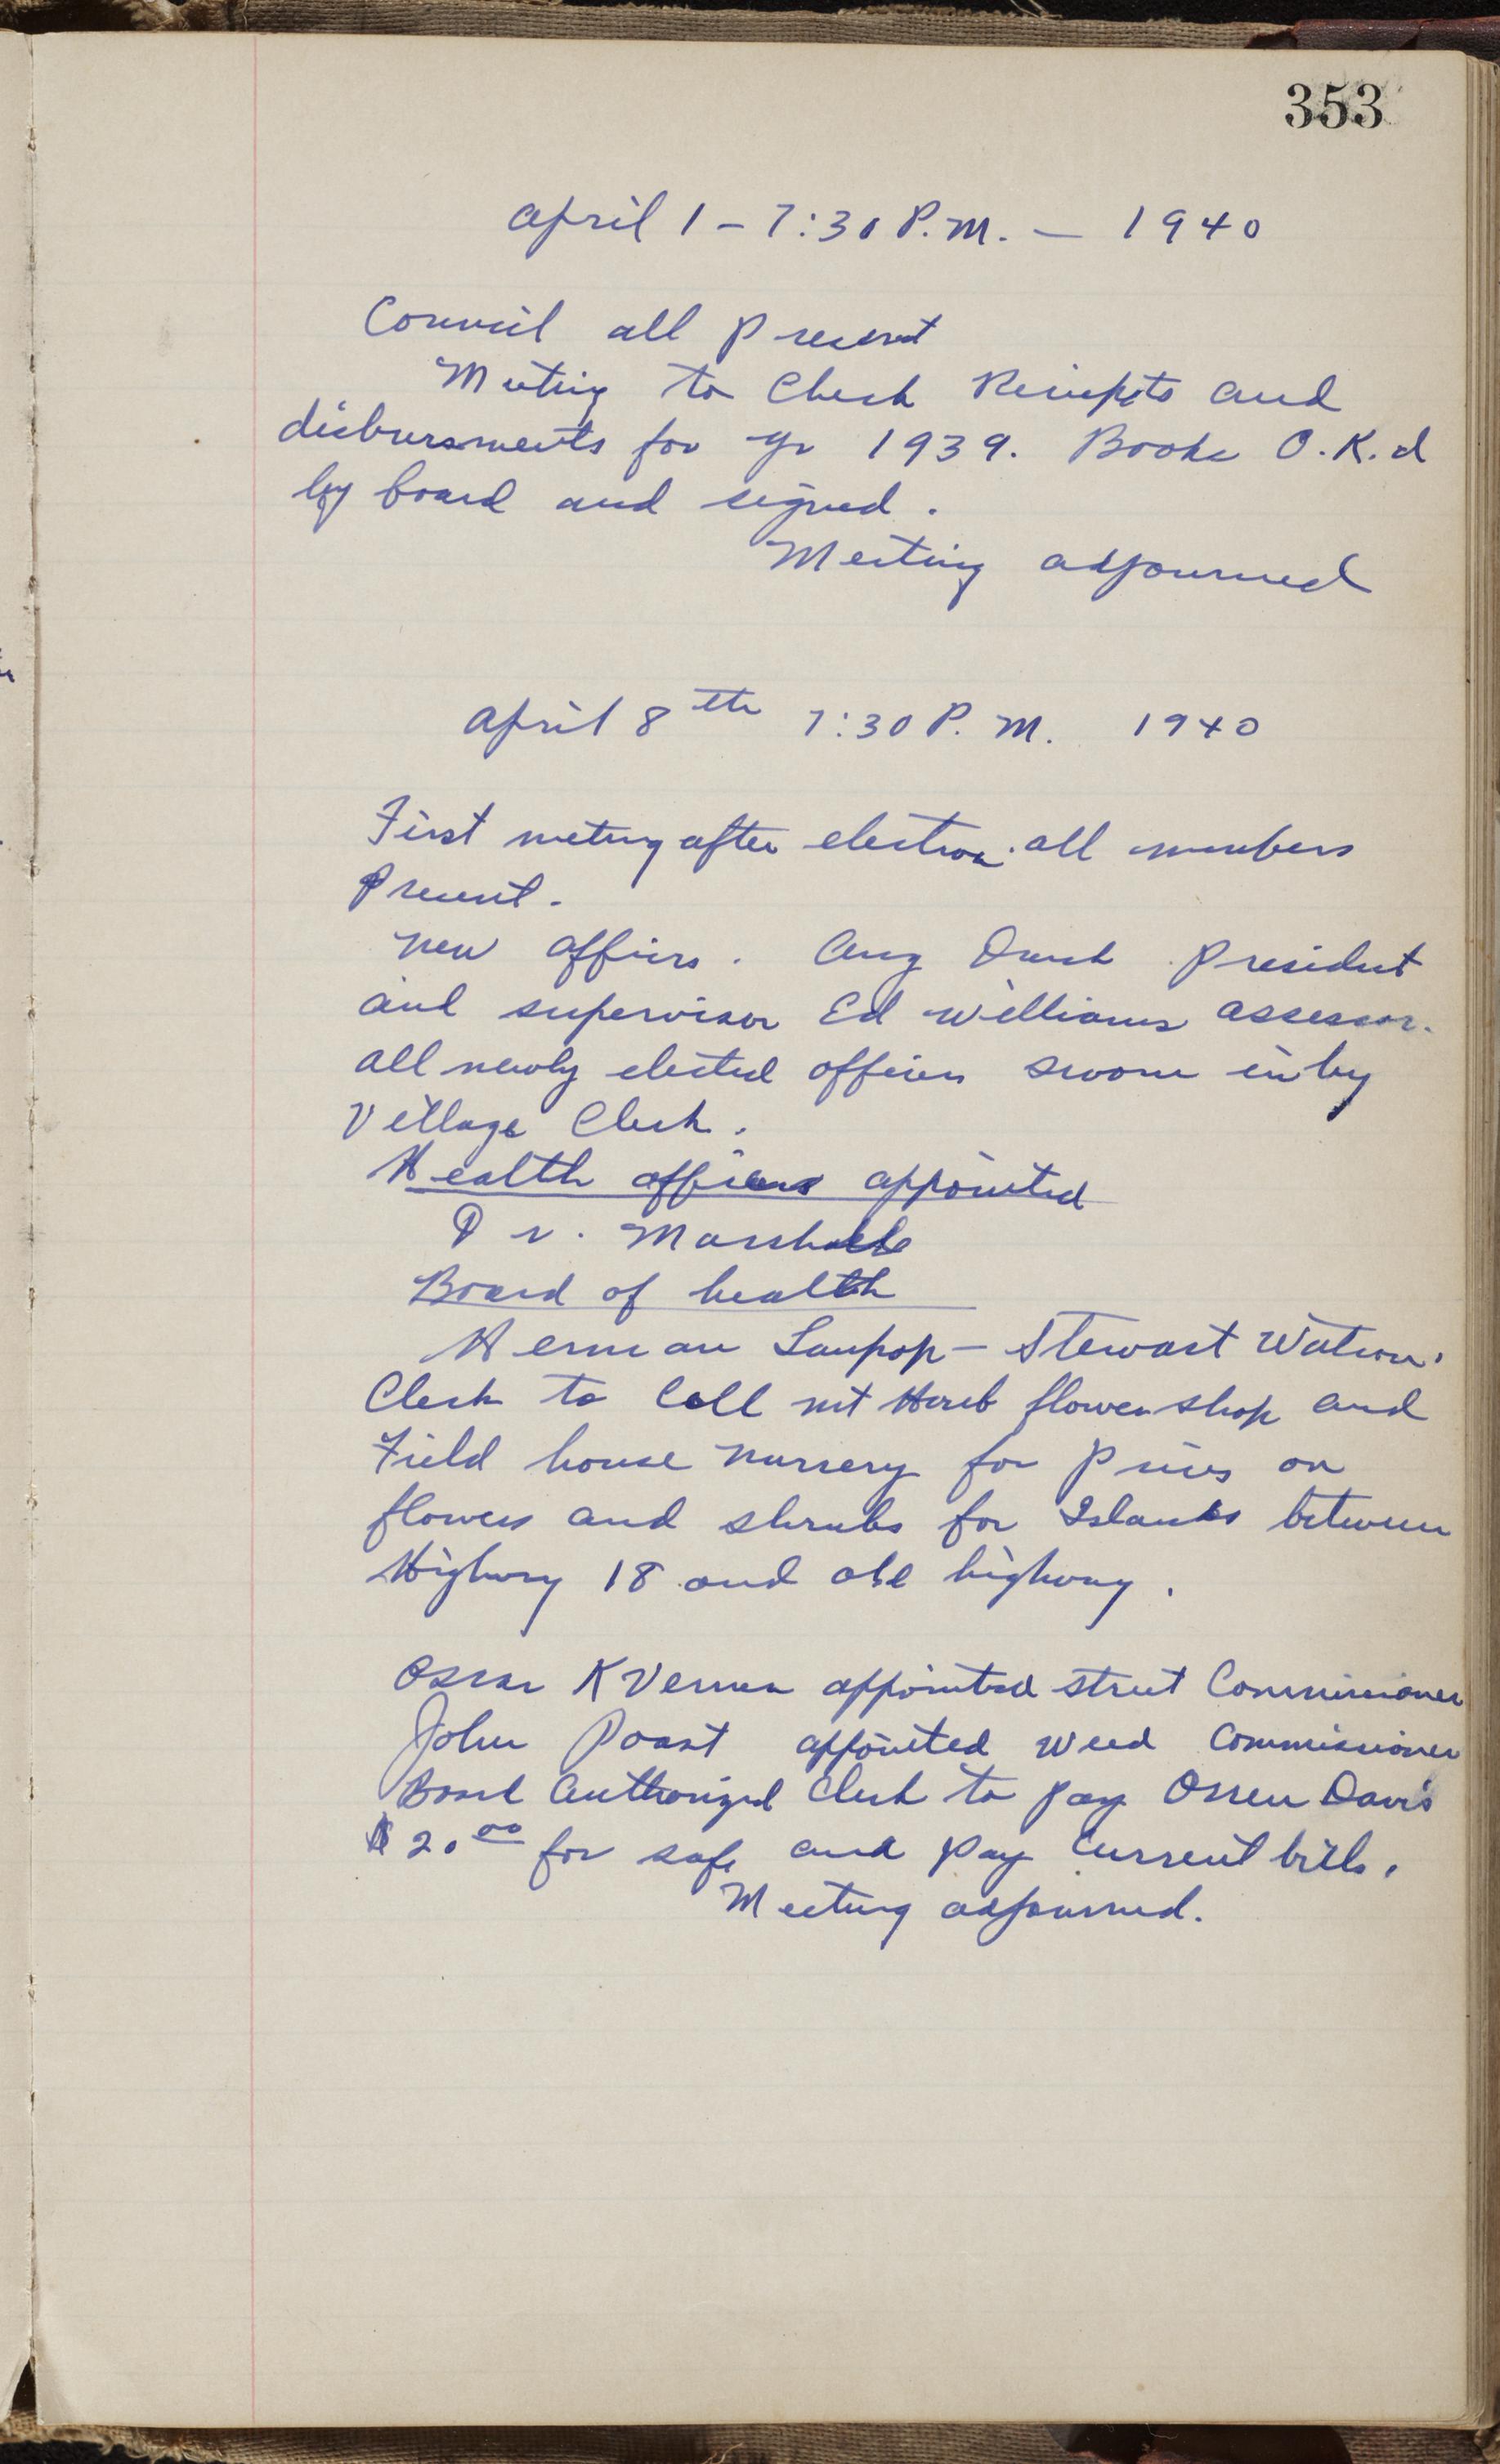 353
April 1 - 7:30 P.M. - 1940
Council all Present
Meeting to Check Reicepts and
disbursments for yr 1939. Books O.K.d
by board and signed.
Meeting adjourned
April 8th 7:30 P.M. 1940
First meeting after election. all members
Present.
New officers. Aug President
and supervisor Ed Williams assessor.
all newly elected officers sworn in by
Village Clerk.
Health officers appointed
Dr. Marshall
Board of health
Herman - Stewart Watson.
Clerk to Call mt Horeb flower shop and
Field house nursery for Prices on
flowers and shrubs for Islands between
Highway 18 and old highway.
Oscar KVernen appointed street Commissioner
John Poast appointed weed Commissioner
Board Authorized Clerk to pay Orren Davis
$20.00 for safe and pay current bills.
Meeting adjourned.